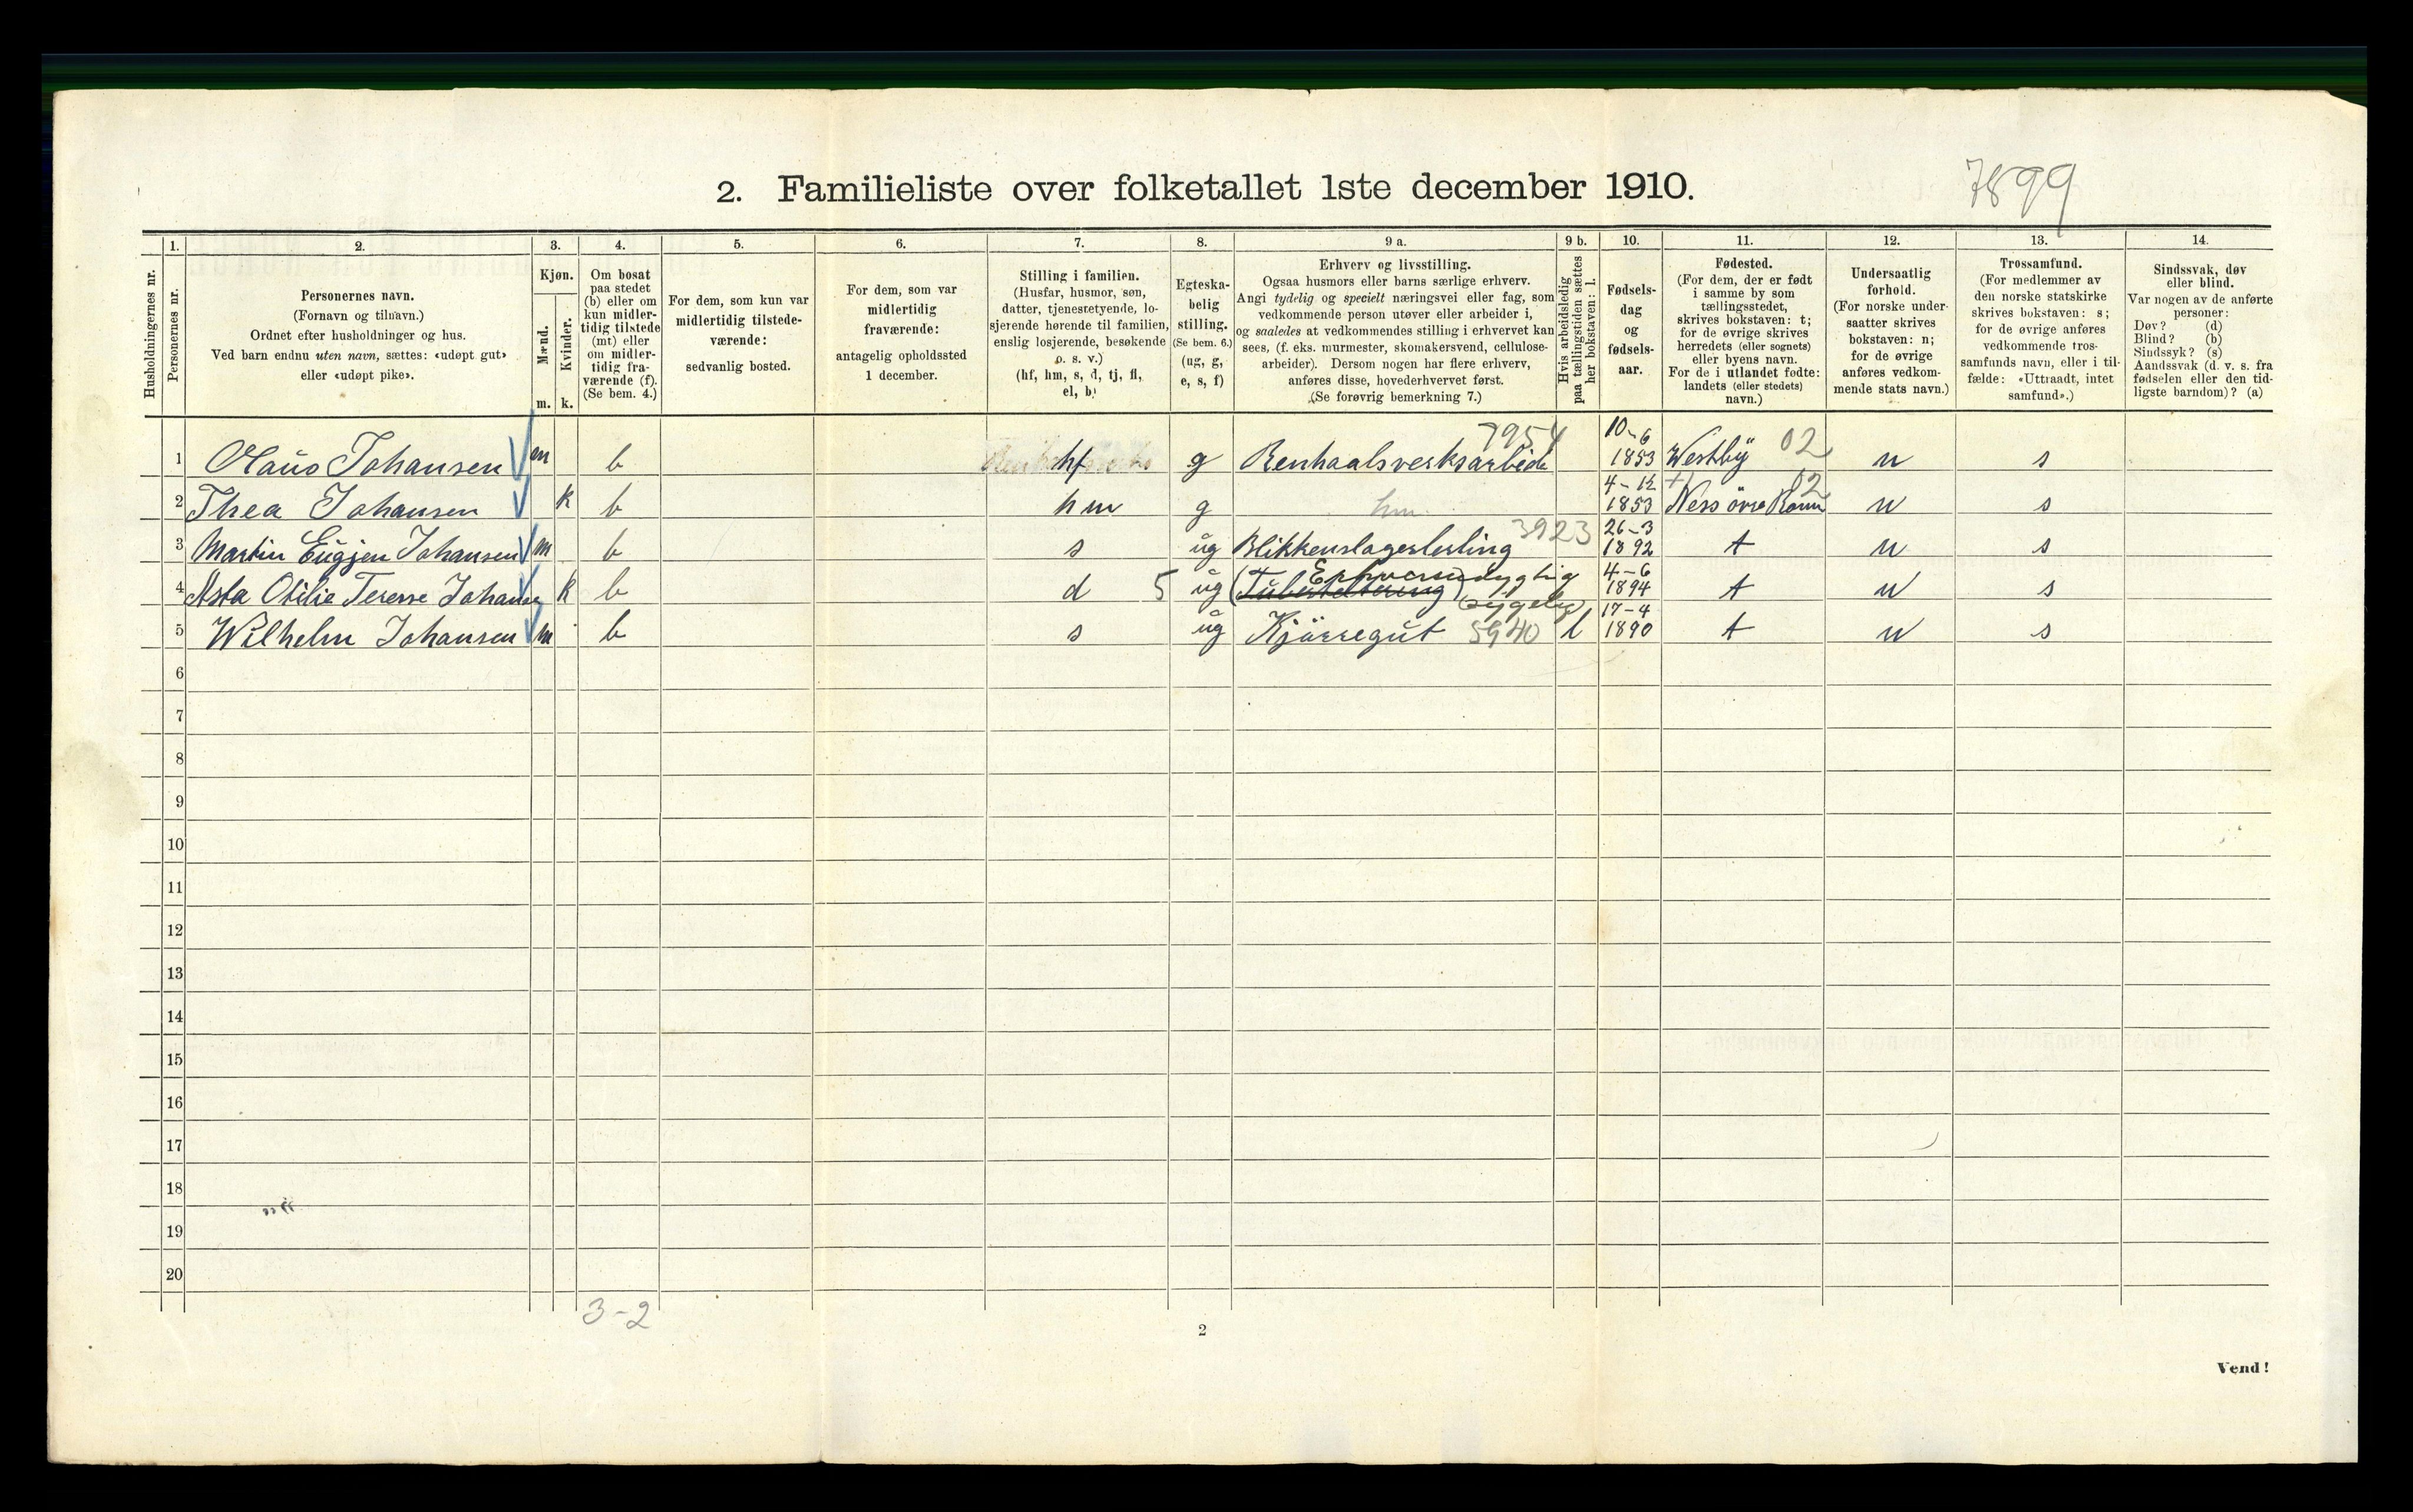 2. Familieliste over folketallet 1ste december 1910.
7899
1. 2. 3. 4. 5. 6. 7. 8. 9 a. 9 b. 10. 11. 12. 13. 14.
Husholdningernes nr.
Personernes nr.
Personernes navn.
(Fornavn og tilnavn.)
Ordnet efter husholdninger og hus.
Ved barn endnu uten navn, sættes: «udøpt gut»
eller «udøpt pike».
Kjøn.
Mænd.
Kvinder.
m. k.
Om bosat
paa stedet
(b) eller om
kun midler-
tidig tilstede
(mt) eller
om midler-
tidig fra-
værende (f).
(Se bem. 4.)
For dem, som kun var
midlertidig tilstede-
værende:
sedvanlig bosted.
For dem, som var
midlertidig
fraværende:
antagelig opholdssted
1 december.
Stilling i familien.
(Husfar, husmor, søn,
datter, tjenestetyende, lo-
sjerende hørende til familien,
enslig losjerende, besøkende
o. s. v.)
(hf, hm, s, d, tj, fl,
el, b)
Egteska-
belig
stilling.
(Se bem. 6.)
(ug, g,
e, s, f)
Erhverv og livsstilling.
Ogsaa husmors eller barns særlige erhverv.
Angi tydelig og specielt næringsvei eller fag, som
vedkommende person utøver eller arbeider i,
og saaledes at vedkommendes stilling i erhvervet kan
sees, (f. eks. murmester, skomakersvend, cellulose-
arbeider). Dersom nogen har flere erhverv,
anføres disse, hovederhvervet først.
(Se forøvrig bemerkning 7.)
Hvis arbeidsledig
paa tællingstiden sættes
her bokstaven: l.
Fødsels-
dag
og
fødsels-
aar.
Fødested.
(For dem, der er født
i samme by som
tællingsstedet,
skrives bokstaven: t;
for de øvrige skrives
herredets (eller sognets)
eller byens navn.
For de i utlandet fødte:
landets (eller stedets)
navn.)
Undersaatlig
forhold.
(For norske under-
saatter skrives
bokstaven: n;
for de øvrige
anføres vedkom-
mende stats navn.)
Trossamfund.
(For medlemmer av
den norske statskirke
skrives bokstaven: s;
for de øvrige anføres
vedkommende tros-
samfunds navn, eller i til-
fælde: «Uttraadt, intet
samfund».)
Sindssvak, døv
eller blind.
Var nogen av de anførte
personer:
Døv? (d)
Blind? (b)
Sindssyk? (s)
Aandssvak (d. v. s. fra
fødselen eller den tid-
ligste barndom)? (a)
1 Olaus Johansen m b hf g Renhaalsverksarbeide 7954 10-6 1853 Westby 02 n s
2 Thea Johansen k b hm g hm 4-12 1853 Ness övre Rom 02 n s
3 Martin Eugjen Johansen m b s ug Blikkenslagerlerling 3923 26-3 1892 t n s
4 Asta Otilie Terese Johansen k b d 5 ug Erhvervsudygtig (sygelig) 4-6 1894 t n s
5 Wilhelm Johansen m b s ug Kjörregut 5940 l 17-4 1890 t n s
6
7
8
9
10
11
12
13
14
15
16
17
18
19
20
3-2
2
Vend!